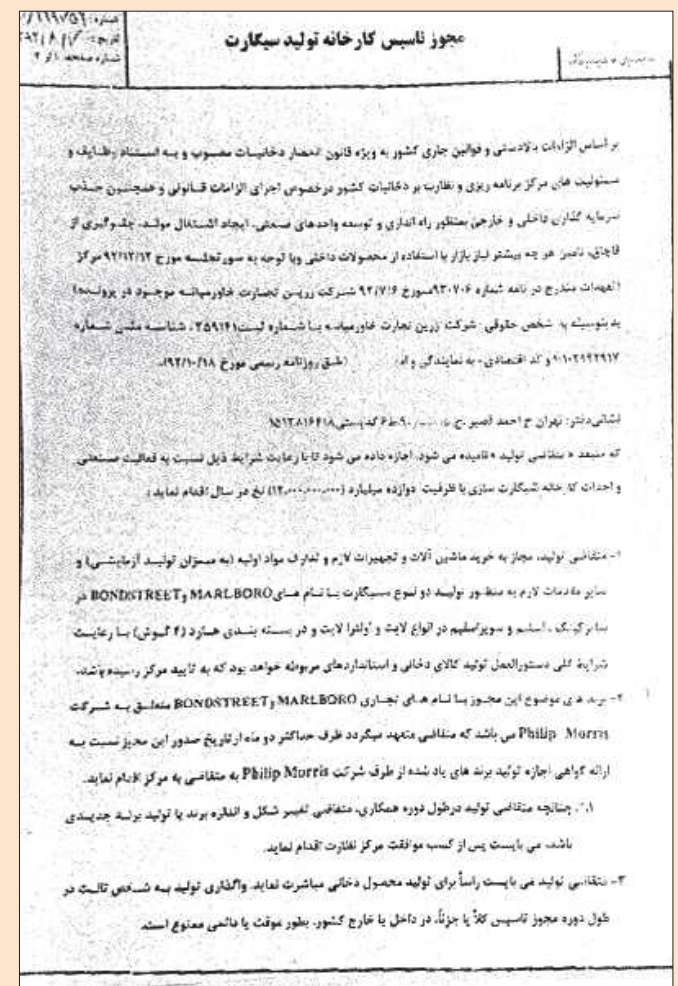 مجوز تاسیس کارخانه تولید سیگارت
شماره:
تاریخ:
شماره صفحه: ۱ از ۲
بر اساس الزامات بالادستی و قوانین جاری کشور به ویژه قانون انحصار دخانیات مصوب و به استناد وظایف و
مسئولیت های مرکز برنامه ریزی و نظارت بر دخانیات کشور درخصوص اجرای الزامات قانونی و همچنین جذب
سرمایه گذاری داخلی و خارجی بمنظور راه اندازی و توسعه واحدهای صنعتی، ایجاد اشتغال مولد، جلوگیری از
قاچاق، تامین هر چه بیشتر نیاز بازار با استفاده از محصولات داخلی وبا توجه به صورتجلسه مورخ ۹۲/۱۲/۱۲ مرکز
(تعهدات مندرج در نامه شماره ۹۳۰۷۰۶مورخ ۹۲/۷/۶ شرکت زرین تجارت خاورمیانه موجود در پرونده)
بدینوسیله به شخص حقوقی شرکت زرین تجارت خاورمیانه با شماره ثبت ، شناسه ملی شماره
و کد اقتصادی- به نمایندگی (طبق روزنامه رسمی مورخ ۹۲/۱۰/۱۸)،
نشانی دفتر: تهران خ احمد قصیر ط۶ کدپستی۱۵۱۳۸۱۶۴۱۸
که منبعد « متقاضی تولید » نامیده می شود، اجازه داده می شود تا با رعایت شرایط ذیل نسبت به فعالیت صنعتی
و احداث کارخانه سیگارت سازی با ظرفیت دوازده میلیارد (۱۲،۰۰۰،۰۰۰،۰۰۰) نخ در سال اقدام نماید:
۱- متقاضی تولید، مجاز به خرید ماشین آلات و تجهیزات لازم و تدارک مواد اولیه (به میزان تولید آزمایشی) و
سایر مقدمات لازم به منظور تولید دو نوع سیگارت با نام های MARLBORO و BONDSTREET در
سایز کینگ ، اسلیم و سوپراسلیم در انواع لایت و اولترا لایت و در بسته بندی هارد (۴ گوش) با رعایت
شرایط کلی دستورالعمل تولید کالای دخانی و استانداردهای مربوطه خواهد بود که به تایید مرکز رسیده باشد.
۲- برند های موضوع این مجوز با نام های تجاری MARLBORO و BONDSTREET متعلق به شرکت
Philip Morris می باشد که متقاضی متعهد میگردد ظرف حداکثر دو ماه از تاریخ صدور این مجوز نسبت به
ارائه گواهی اجازه تولید برند های یاد شده از طرف شرکت Philip Morris به متقاضی به مرکز اقدام نماید.
۲.۱. چنانچه متقاضی تولید درطول دوره همکاری، متقاضی تغییر شکل و اندازه برند یا تولید برند جدیدی
باشد، می بایست پس از کسب موافقت مرکز نظارت اقدام نماید.
۳- متقاضی تولید می بایست راساً برای تولید محصول دخانی مباشرت نماید. واگذاری تولید به شخص ثالث در
طول دوره مجوز تاسیس کلاً یا جزئاً، در داخل یا خارج کشور، بطور موقت یا دائمی ممنوع است.